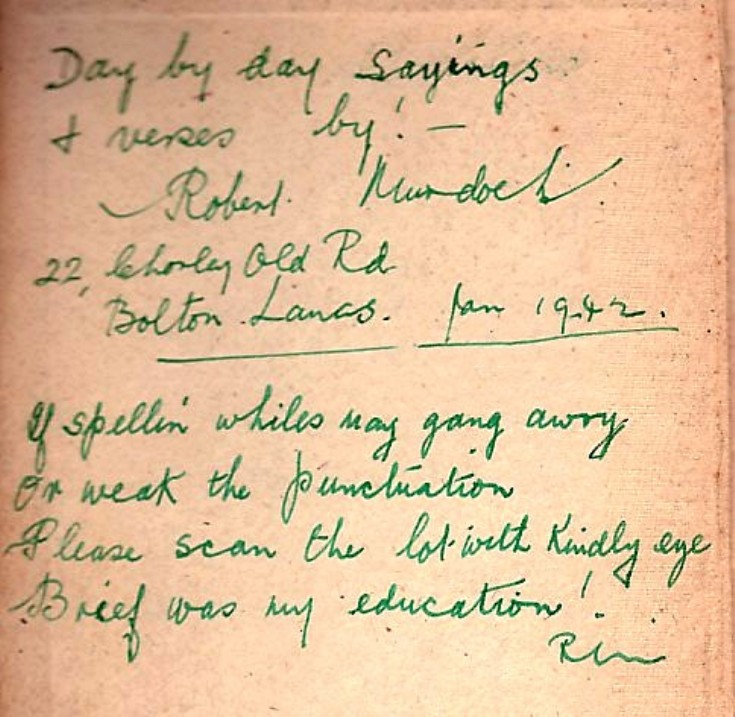 Day by day Sayings
& verses by! —
Robert Murdoch
22, Chorley Old Rd
Bolton Lancs. Jan 1942.
If spellin' whiles may gang awry
Or weak the punctuation
Please scan the lot with Kindly eye
Brief was my education!
RM